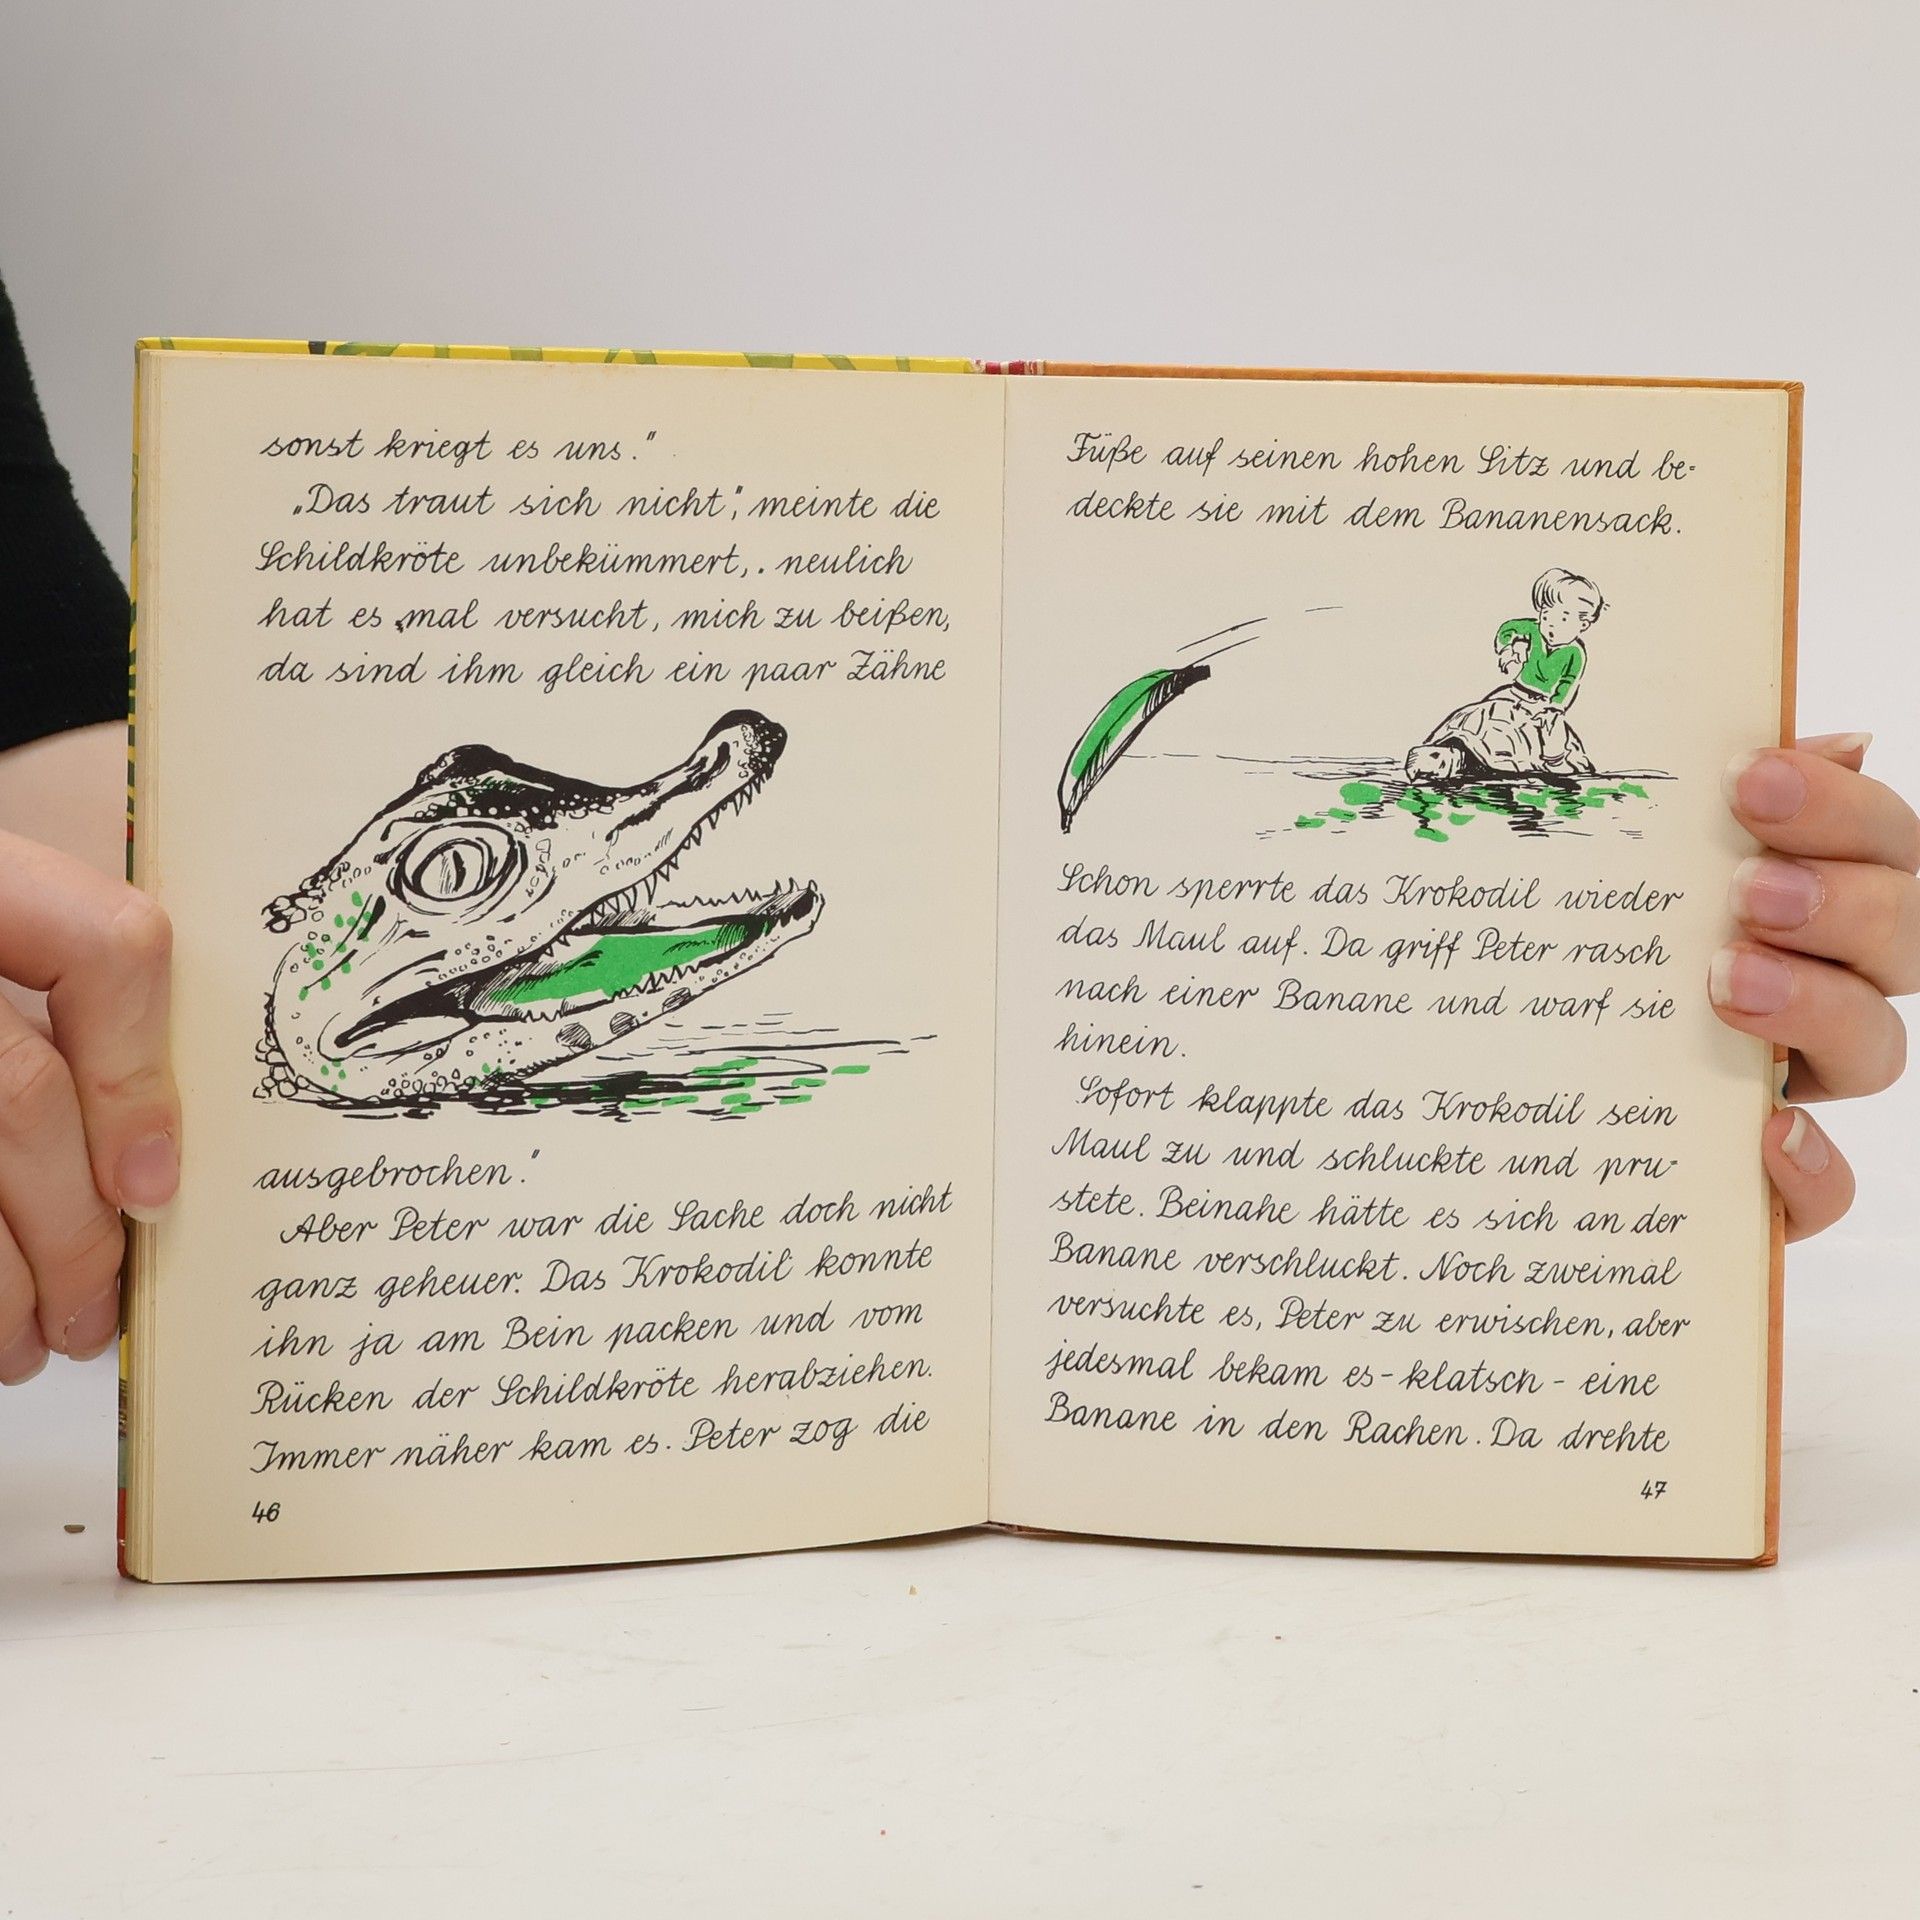 sonst kriegt es uns."
„Das traut sich nicht", meinte die
Schildkröte unbekümmert, . neulich
hat es mal versucht, mich zu beißen,
da sind ihm gleich ein paar Zähne
ausgebrochen."
Aber Peter war die Sache doch nicht
ganz geheuer. Das Krokodil konnte
ihn ja am Bein packen und vom
Rücken der Schildkröte herabziehen.
Immer näher kam es. Peter zog die
46
Füße auf seinen hohen Sitz und be-
deckte sie mit dem Bananensack.
Schon sperrte das Krokodil wieder
das Maul auf. Da griff Peter rasch
nach einer Banane und warf sie
hinein.
Sofort klappte das Krokodil sein
Maul zu und schluckte und pru-
stete. Beinahe hätte es sich an der
Banane verschluckt. Noch zweimal
versuchte es, Peter zu erwischen, aber
jedesmal bekam es - klatsch - eine
Banane in den Rachen. Da drehte
47